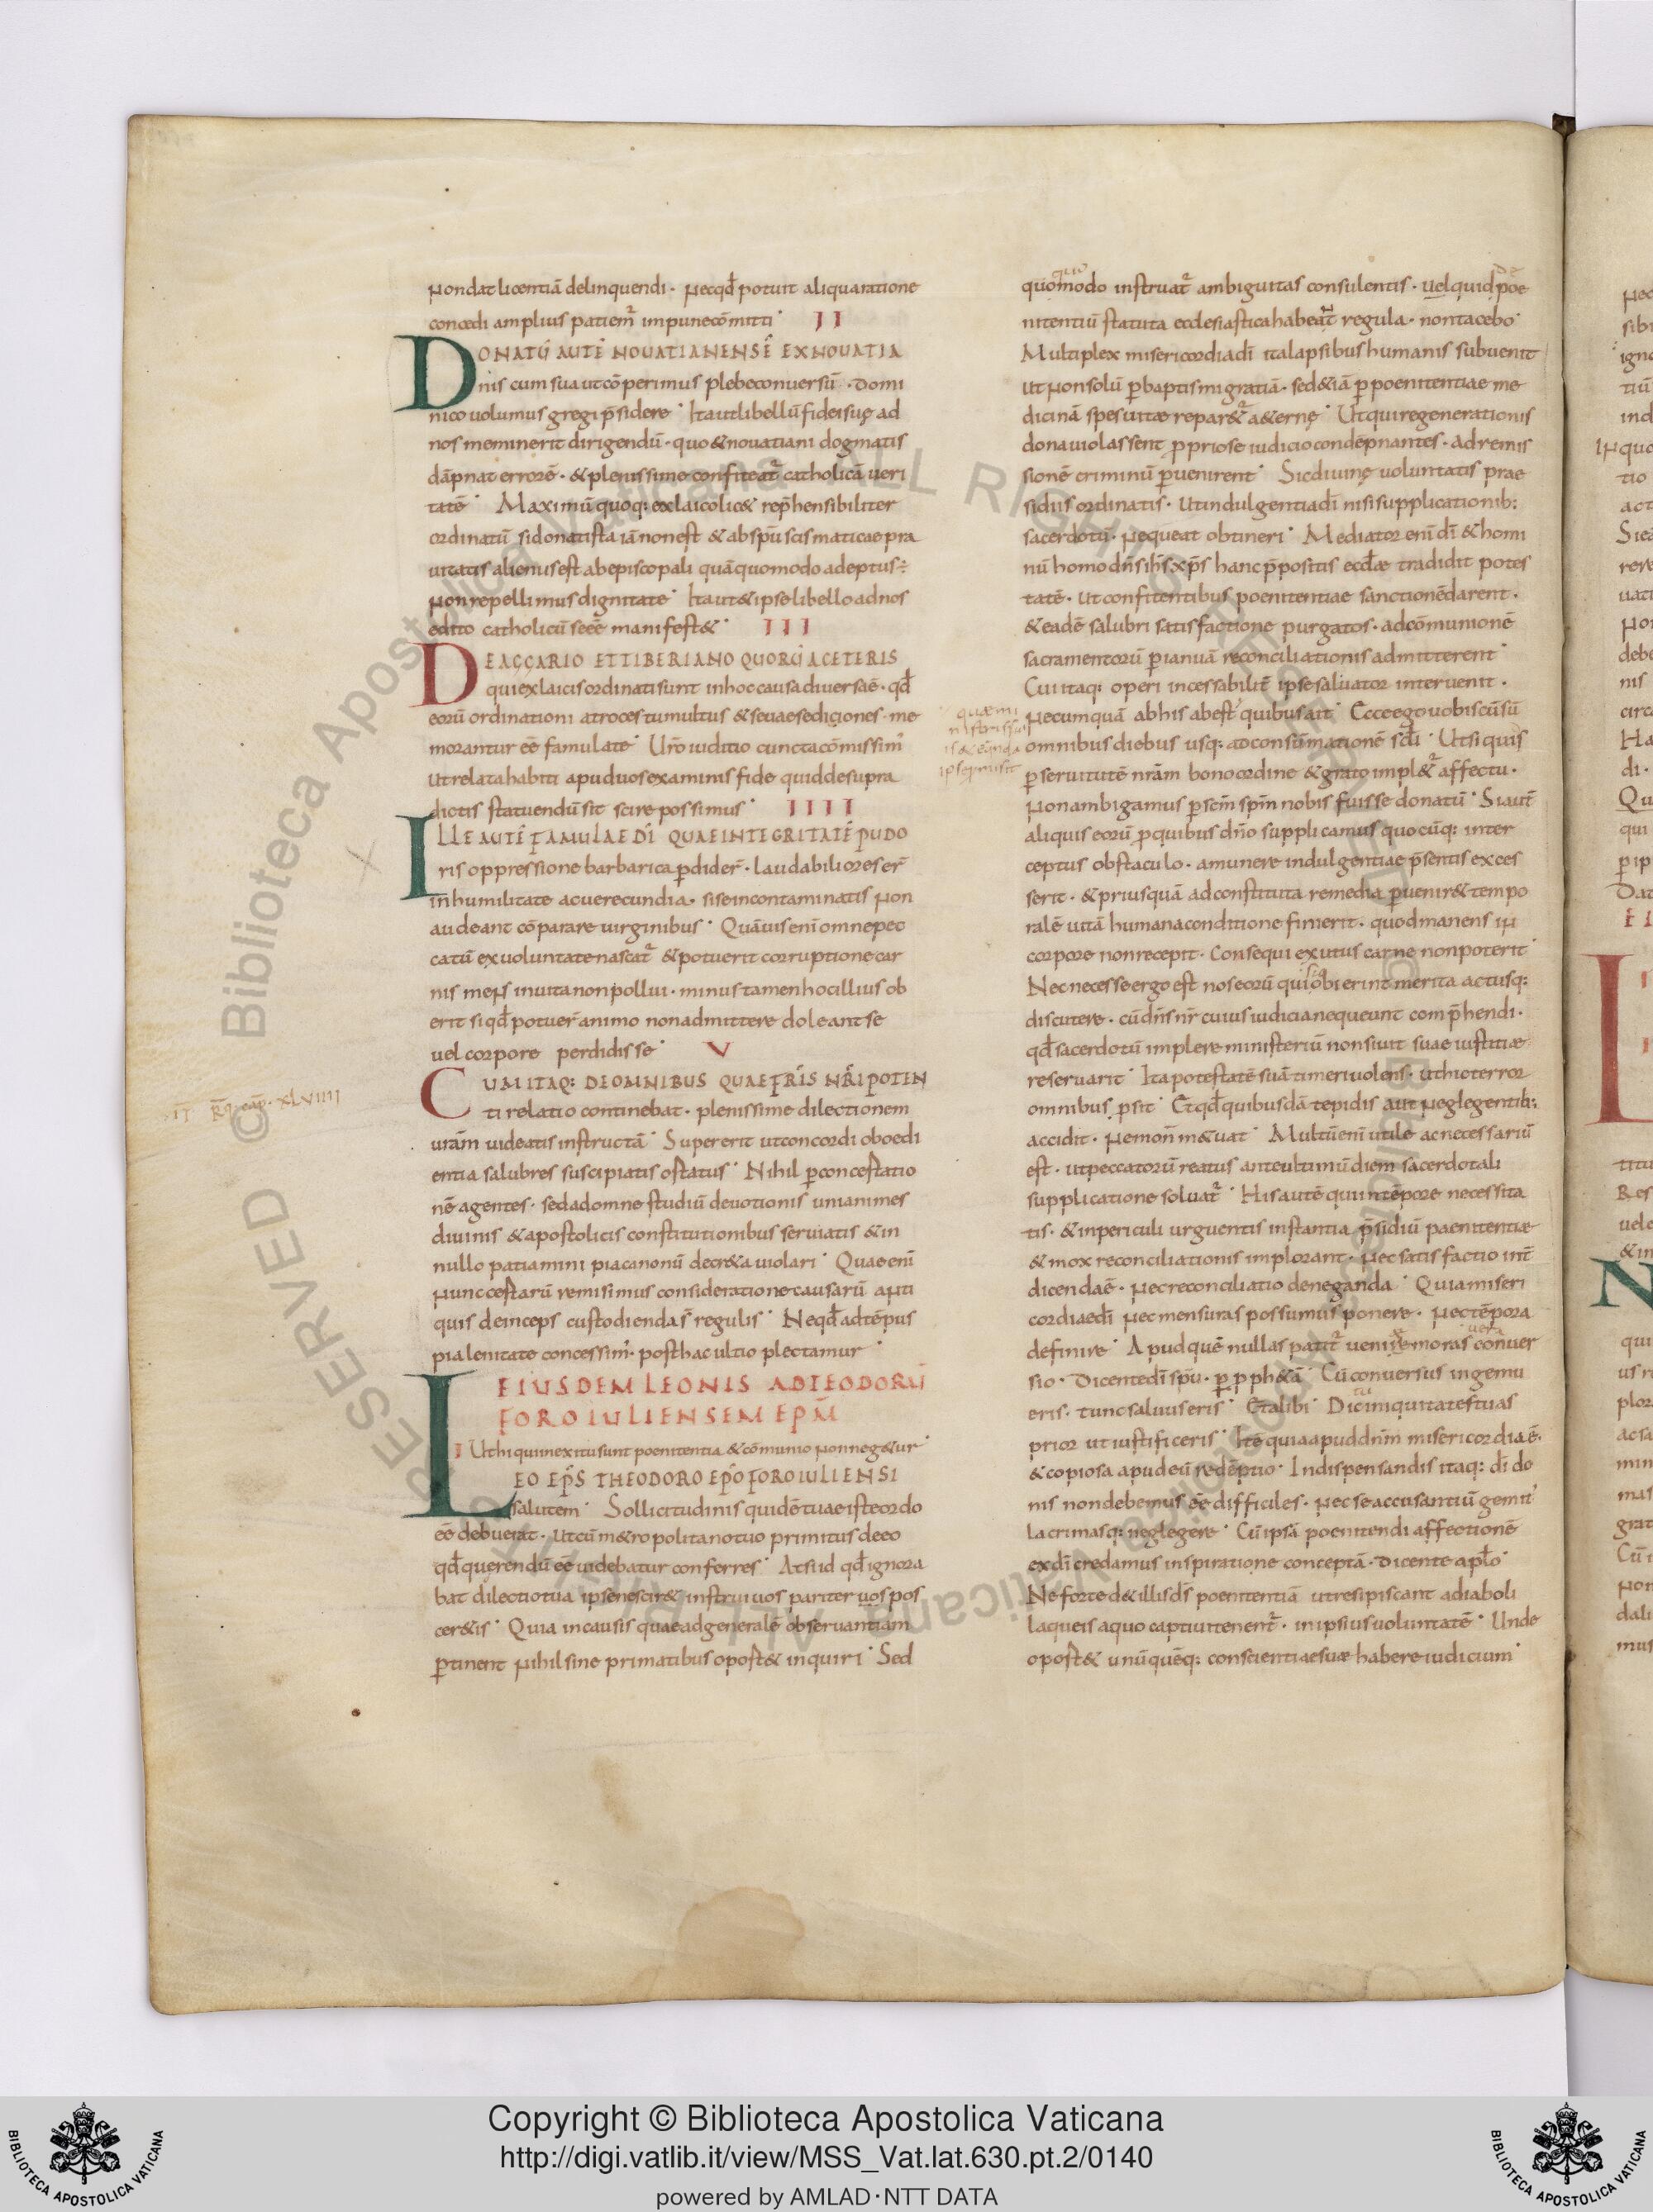 non dat licentiā delinquendi · nec qđ potuit aliqua ratione
concedi amplius patiem̄ impune cōmitti · II
DONATŪ AUTĒ NOUATIANENSĒ EX NOUATIA
nis cum sua ut cōperimus plebe conuersū · domi
nico uolumus gregi p̄sidere · Ita ut libellū fidei suę ad
nos meminerit dirigendū · quo & nouatiani dogmatis
dāpnat errorē · & plenissime confiteat̄ catholicā ueri
tatē · Maximū quoq: ex laico lic& rep̄hensibiliter
ordinatū si donatista iā non est & ab spū scismaticae pra
uitatis alienus est ab episcopali quā quomodo adeptus ÷
non repellimus dignitate · Ita ut & ipse libello ad nos
edito catholicū se eē manifest& · III
DE AGGARIO ET TIBERIANO QUORŪ A CETERIS
qui ex laicis ordinati sunt in hoc causa diuersa ē · qđ
eorū ordinationi atroces tumultus & seuae sediciones me
morantur eē famulate · Ur̄o iuditio cuncta cōmissim'
ut relata habiti apud uos examinis fide quid de supra
dictis statuendū sit scire possimus · IIII
ILLE AUTĒ FAMULAE DĪ QUAE INTEGRITATĒ PUDO
ris oppressione barbarica p̄dider̄ · laudabiliores er̄
in humilitate ac uerecundia · si se incontaminatis non
audeant cōparare uirginibus · Quāuis enī omne pec
catū ex uoluntate nascat̄ & potuerit corruptione car
nis mens inuita non pollui · minus tamen hoc illius ob
erit si qđ potuer̄ animo non admittere doleant se
uel corpore perdidisse · V
CUM ITAQ: DE OMNIBUS QUAE FR̄IS NR̄I POTEN
ti relatio continebat · plenissime dilectionem
urām uideatis instructā · Supererit ut concordi oboedi
entia salubres suscipiatis ostatus · Nihil p̄ concestatio
nē agentes · sed ad omne studiū deuotionis unianimes
diuinis & apostolicis constitutionibus seruiatis & in
nullo patiamini pia canonū decr&a uiolari · Quae enī
nunc cestarū remisimus consideratione causarū anti
quis deinceps custodienda s̄ regulis · Ne qđ ad tēpus
pia lenitate concessim' · post hac ultio plectamur ·
EIUSDEM LEONIS AD TEODORŪ
FOROIULIENSEM EPM̄
I Ut hi qui in exitu sunt poenitentia & cōmunio non neg&ur ·
LEO EPS̄ THEODORO EPŌ FOROIULIENSI
salutem · Sollicitudinis quidē tuae iste ordo
eē debuerat · ut cū m&ropolitano tuo primitus de eo
qđ querendū eē uidebatur conferres · At si id qđ ignora
bat dilectio tua ipse nescir& instrui uos pariter uos pos
cer&is · Quia in causis quae ad generalē obseruantiam
p̄tinent nihil sine primatibus oport& inquiri · Sed
quomodo instruat̄ ambiguitas consulentis · uel quid poe
nitentiū statuta ecclesiastica habeat̄ regula · non tacebo ·
Multiplex misericordia dī ita lapsibus humanis subuenit
ut non solū p̄ baptismi gratiā · sed &iā p̄ poenitentiae me
dicinā spes uitae repar&̄ a&ernę · Ut qui regenerationis
dona uiolassent p̄prio se iudicio condepnantes · ad remis
sionē criminū p̄uenirent · Sic diuinę voluntatis prae
sidiis ordinatis · Ut indulgentia dī nisi supplicationib:
sacerdotū · nequeat obtineri · Mediator enī dī & homi
nū homo dn̄s ih̄s xp̄s hanc p̄positis eccl̄ae tradidit potes
tatē · ut confitentibus poenitentiae sanctionē darent ·
& eadē salubri satisfactione purgatos · ad cōmunionē
sacramentorū p̄ ianuā reconciliationis admitterent ·
Cui itaq: operi incessabilit̄ ipse saluator interuenit ·
nec umquā ab his abest quibus ait · Ecce ego uobiscū sū
omnibus diebus usq: ad consūmationē scl̄i · Ut si quis
p̄ seruitutē nrām bono ordine & grato impl&̄ affectu ·
non ambigamus p̄ scm̄ spm̄ nobis fuisse donatū · Si aut̄
aliquis eorū p̄ quibus dn̄o supplicamus quocūq: inter
ceptus obstaculo · a munere indulgentiae p̄sentis exces
serit · & priusquā ad constituta remedia p̄uenir& tempo
ralē uitā humana conditione finierit · quod manens in
corpore non recepit · Consequi exutus carne non poterit ·
Nec necesse ergo est nos eorū qui sic obierint merita actusq:
discutere · cū dn̄s nr̄ cuius iudicia nequeunt comp̄hendi ·
qđ sacerdotū implere ministeriū nonsiuit suae iustitiae
reseruarit · Ita potestatē suā timeri uolens · ut hic terror
omnibus p̄sit · Et qđ quibusdā tepidis aut neglegentib:
accidit · nemon̄ m&uat · Multū enī utile ac necessariū
est · ut peccatorū reatus ante ultimū diem sacerdotali
supplicatione soluat̄ · His autē qui in tēpore necessita
tis · & in periculi urguentis instantia p̄sidiū paenitentiae
& mox reconciliationis implorant · nec satisfactio int̄
dicenda ē · nec reconciliatio deneganda · Quia miseri
cordiae dī nec mensuras possumus ponere · nec tēpora
definire · Apud quē nullas patit̄ ueniae moras conuer
sio · Dicente dī spū · p̄ p̄ph&ā · Cū conuersus ingemu
eris · tunc saluus eris · Et alibi · Dic iniquitates tuas
prior ut iustificeris · Itē quia apud dn̄m misericordia ē ·
& copiosa apud eū redēptio · In dispensandis itaq: dī do
nis non debemus eē difficiles · nec se accusantiū gemit'
lacrimasq: neglegere · Cū ipsā poenitendi affectionē
ex dī credamus inspiratione conceptā · Dicente aplō ·
Ne forte d& illis ds̄ poenitentiā ut resipiscant a diaboli
laqueis a quo captiui tenent̄ · in ipsius uoluntatē · Unde
oport& unūquēq: conscientiae suae habere iudicium ·
Copyright © Biblioteca Apostolica Vaticana
http://digi.vatlib.it/view/MSS_Vat.lat.630.pt.2/0140
powered by AMLAD·NTT DATA